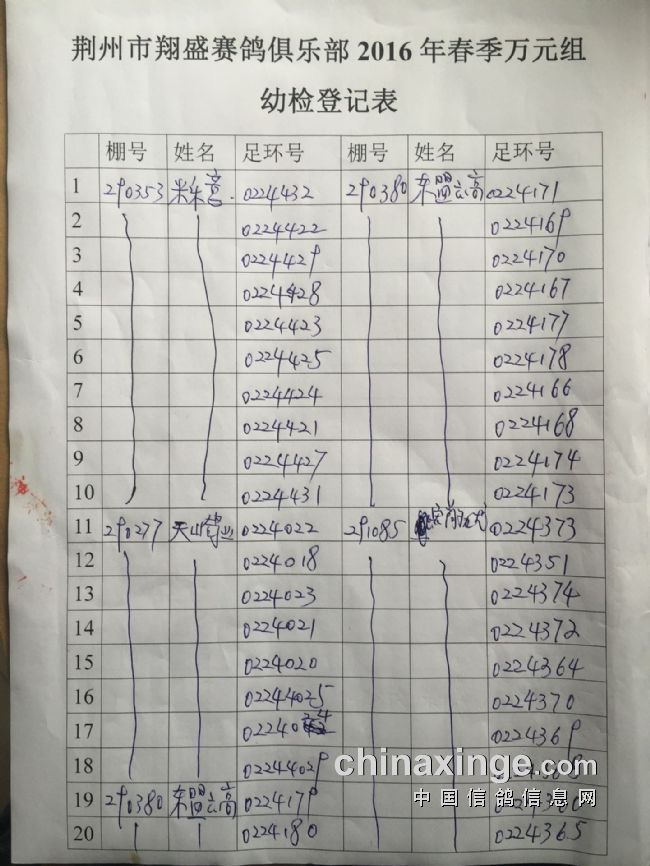 荆州市翔盛赛鸽俱乐部2016年春季万元组
幼检登记表
棚号 姓名 足环号 棚号 姓名 足环号
1 290353 朱高 0224432 290380 东盟云高 0224171
2 0224422 0224169
3 0224429 0224170
4 0224428 0224167
5 0224423 0224177
6 0224425 0224178
7 0224424 0224166
8 0224421 0224168
9 0224427 0224174
10 0224431 0224173
11 290277 天山 0224022 291085 0224373
12 0224018 0224351
13 0224023 0224374
14 0224021 0224372
15 0224020 0224364
16 02244025 0224370
17 02240 0224369
18 02244029
19 290380 东盟云高 0224179
20 0224180 0224365
chinaxinge.com
中国信鸽信息网